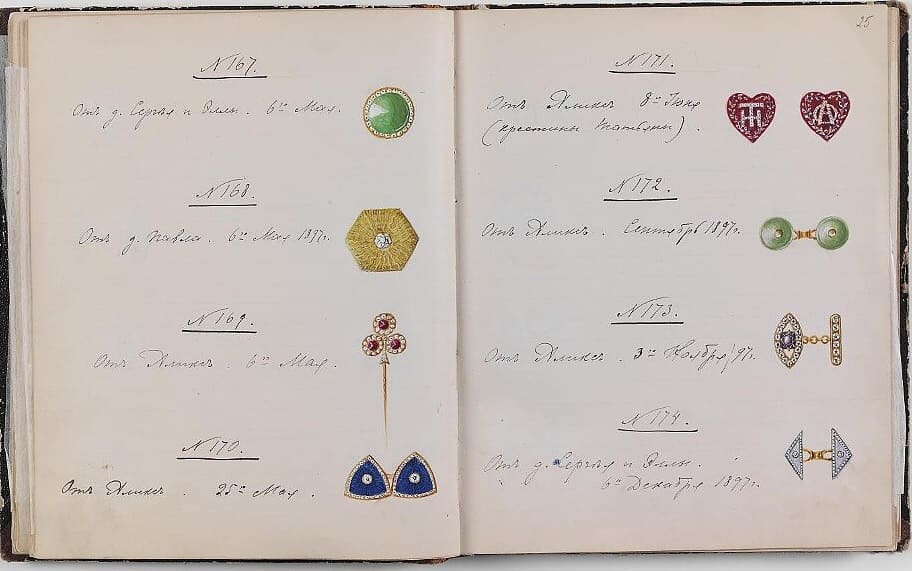 N 167.
Отъ д. Сергѣя и Эллы. 6го Мая.
N 168.
Отъ д. Павла. 6го Мая 1897г.
N 169.
Отъ Аликсъ. 6го Мая.
N 170.
Отъ Аликсъ. 25го Мая.
25
N 171.
Отъ Аликсъ 8го Іюня
(крестины Татьяны).
N 172.
Отъ Аликсъ. Сентябрь 1897г.
N 173.
Отъ Аликсъ. 3го Ноября/97г.
N 174.
Отъ д. Сергѣя и Эллы.
6го Декабря 1897г.